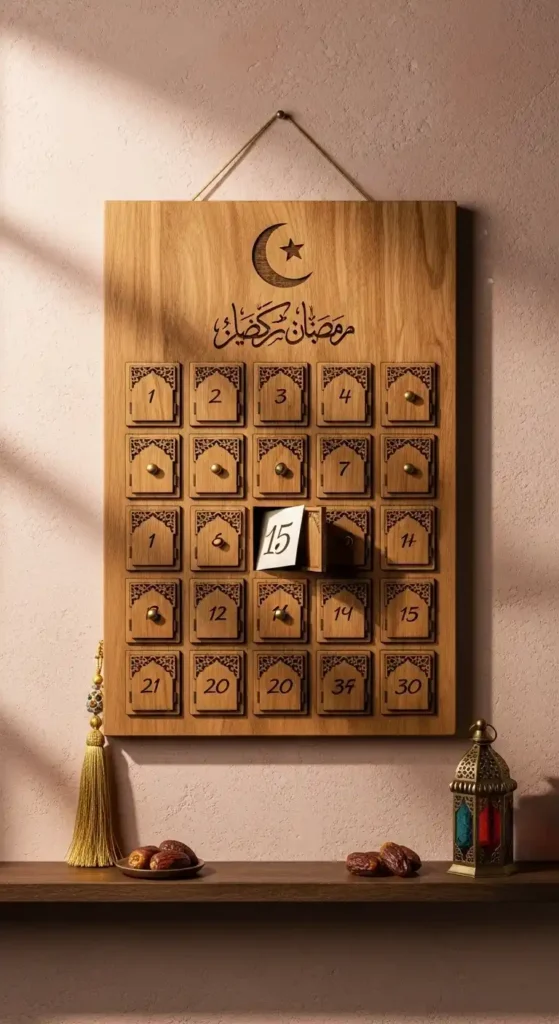 رمضان
1 2 3 4
7
1 6 15 11
12 14 15
21 20 20 34 30